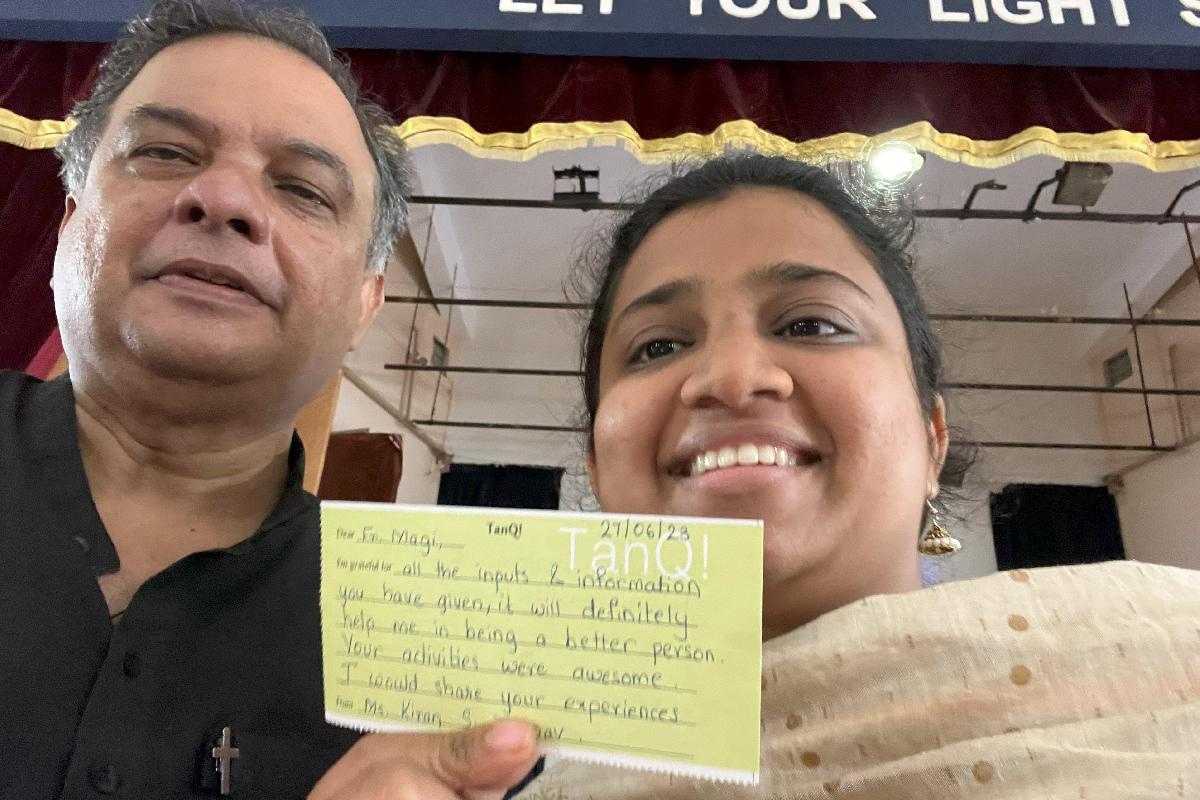 LET YOUR LIGHT S
TanQ! 27/06/23
TanQ!
Dear Fr. Magi,
I'm grateful for all the inputs & information
you have given, it will definitely
help me in being a better person.
Your activities were awesome.
I would share your experiences
From Ms. Kiran S